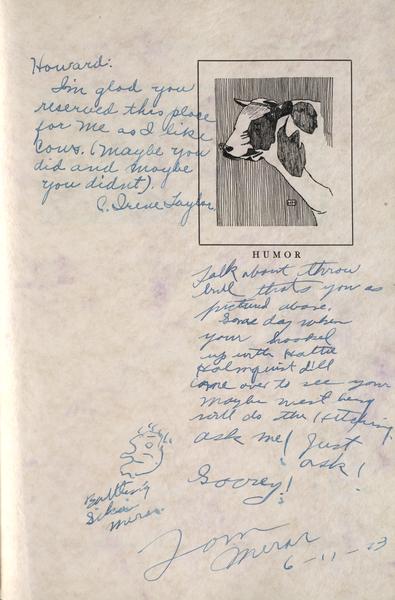 Howard:
I'm glad you
reserved this place
for me as I like
cows. (Maybe you
did and maybe
you didnt).
C. Irene Taylor
HUMOR
Talk about throw
bull thats you as
pictured above.
Some day when
your hooked
up with Hattie
Holmquist I'll
come over to see you
maybe
will do the
ask me! Just
ask!
Battling
Tom
6-11-23